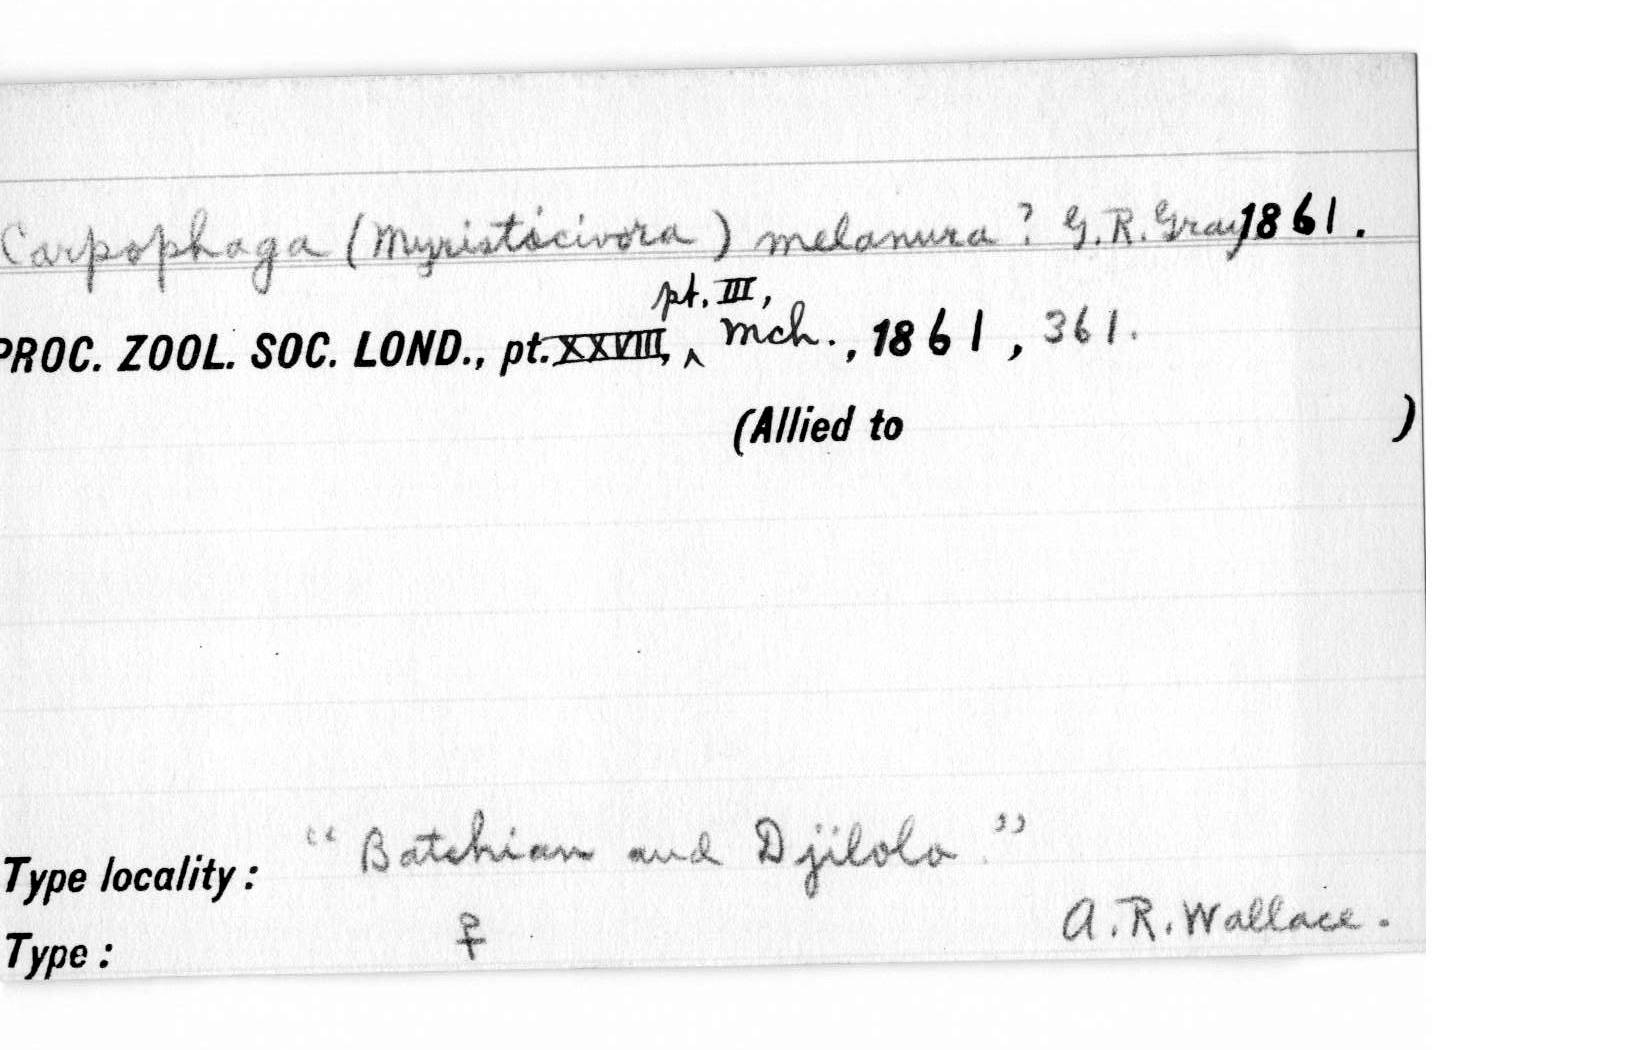 Carpophaga (Myristicivora) melanura? G.R.Gray 1861.
pt. III,
PROC. ZOOL. SOC. LOND., pt. XXVIII, ^ Mch., 1861, 361.
(Allied to )
Type locality: "Batchian and Djilolo."
A.R.Wallace.
Type: ♀